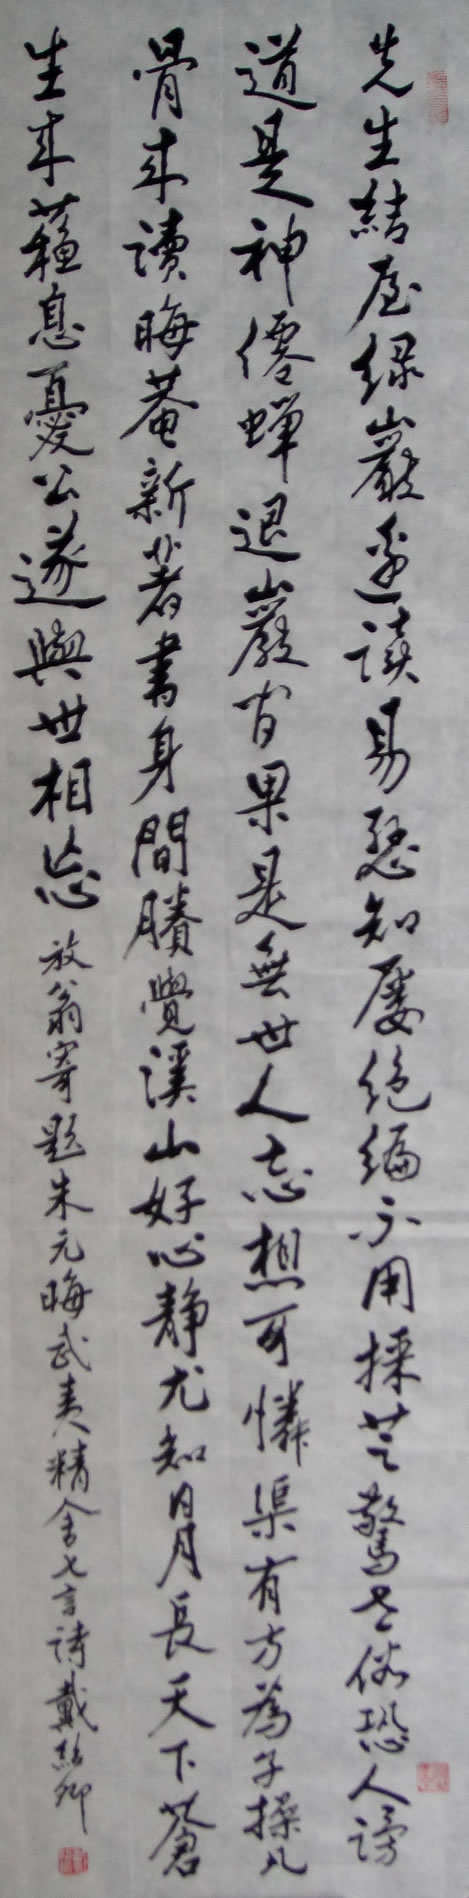 先生結屋绿巖邊讀易懸知屡絶编不用採芝驚世俗恐人謗
道是神僊蝉退巖間果是無世人忘想可憐渠有方為子操凡
骨来讀晦菴新著書身間賸覺溪山好心静尤知日月長天下蒼
生未蘓息憂公遂與世相忘 放翁寄题朱元晦武夷精舍七言詩戴紹卿